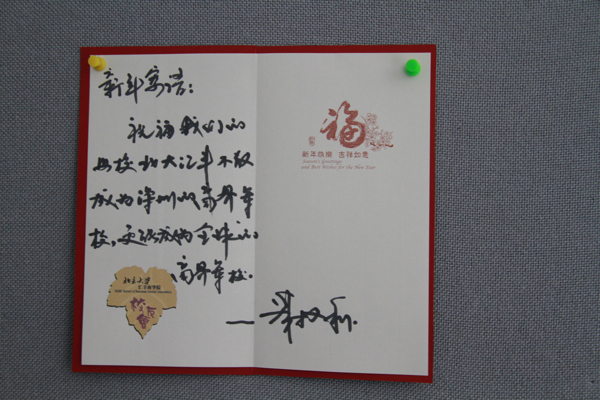 新年寄语:
祝福我们的
母校北大汇丰不仅
成为深圳的商界军
校,更能成为全球的
商界军校.
北京大学
汇丰商学院
福
新年快樂 吉祥如意
Season's Greetings
and Best Wishes for the New Year